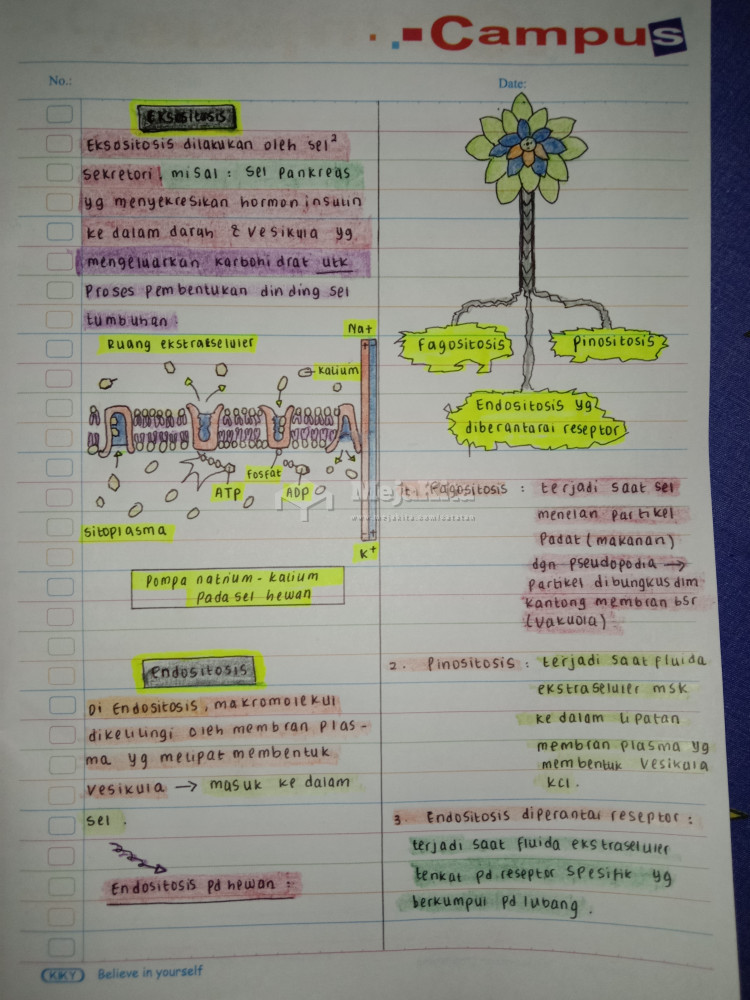 Campus
No.:
Date:
Eksositosis
Eksositosis dilakukan oleh sel²
sekretori, misal : sel pankreas
yg menyekresikan hormon insulin
ke dalam darah & vesikula yg
mengeluarkan karbohidrat utk
Proses pembentukan dinding sel
tumbuhan
Ruang ekstraseluler
Na+
kalium
fosfat
ATP
ADP
sitoplasma
K+
Pompa natrium - kalium
pada sel hewan
Endositosis
Di Endositosis, makromolekul
dikelilingi oleh membran plas-
ma yg melipat membentuk
vesikula → masuk ke dalam
sel.
Endositosis pd hewan :
Fagositosis
Pinositosis
Endositosis yg
diberantarai reseptor
Fagositosis : terjadi saat sel
menelan partikel
Padat (makanan)
dgn pseudopodia →
partikel dibungkus dlm
kantong membran bsr
(vakuola)
2. Pinositosis : terjadi saat fluida
ekstraseluler msk
ke dalam lipatan
membran plasma yg
membentuk vesikula
kcl.
3. Endositosis diperantai reseptor :
terjadi saat fluida ekstraseluler
terikat pd reseptor spesifik yg
berkumpul pd lubang.
Mejakita
KIKY Believe in yourself